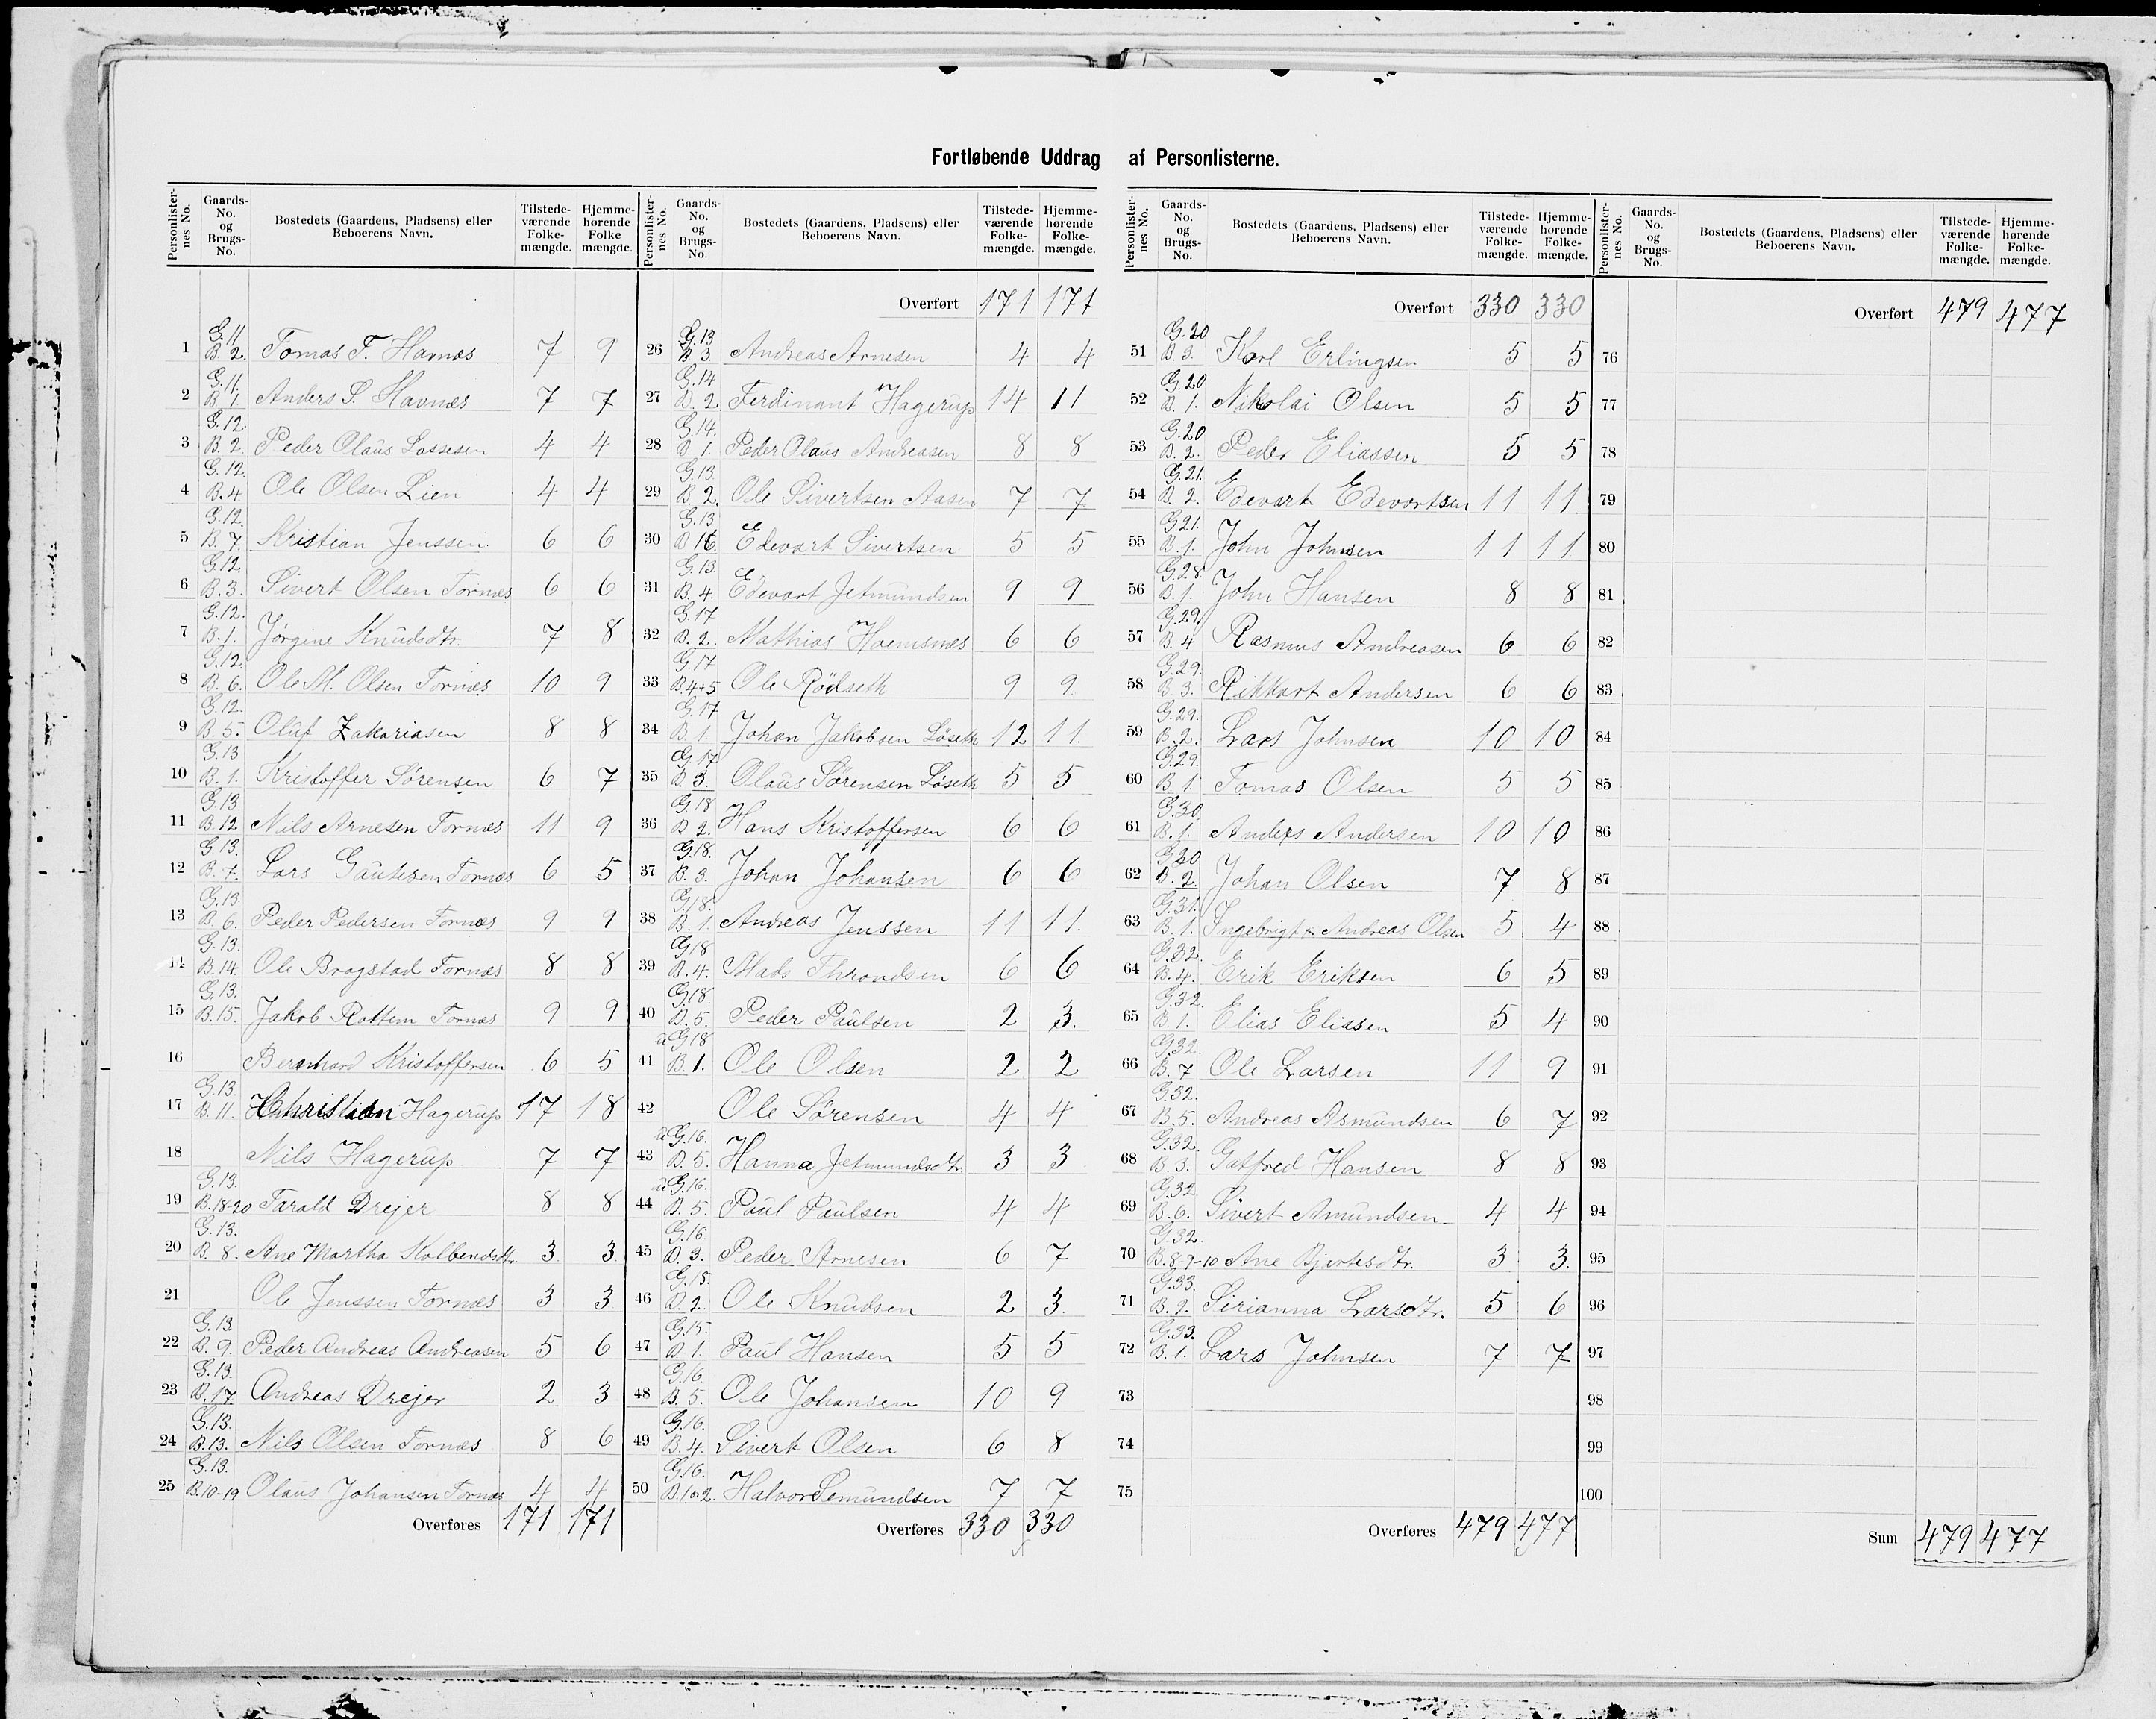 Fortløbende Uddrag af Personlisterne.
Personlisternes No. Gaards-No. og Brugs-No. Bostedets (Gaardens, Pladsens) eller Beboerens Navn. Tilstedeværende Folkemængde. Hjemmehørende Folke mængde.
1 G.11 B.2. Tomas T. Havnæs 7 9
2 G.11. B.1. Anders P. Havnæs 7 7
3 G.12. B.2. Peder Olaus Lassesen 4 4
4 G.12. B.4 Ole Olsen Lien 4 4
5 G.12. B.7. Kristian Jenssen 6 6
6 G.12. B.3. Sivert Olsen Tornæs 6 6
7 G.12. B.1. Jørgine Knudsdtr. 7 8
8 G.12. B.6. Ole M. Olsen Tornæs 10 9
9 G.12. B.5. Oluf Zakariasen 8 8
10 G.13 B.1. Kristoffer Sørensen 6 7
11 G.13 B.12 Nils Arnesen Tornæs 11 9
12 G.13. B.7. Lars Gautesen Tornæs 6 5
13 G.13. B.6. Peder Pedersen Tornæs 9 9
14 G.13. B.14. Ole Bragstad Tornæs 8 8
15 G.13. B.15. Jakob Rottem Tornæs 9 9
16 Bernhard Kristoffersen 6 5
17 G.13. B.11. Christian Hagerup 17 18
18 Nils Hagerup 7 7
19 G.13. B.18-20 Tarald Drejer 8 8
20 G.13. B.8. Ane Martha Kolbendsdtr. 3 3
21 Ole Jenssen Tornæs 3 3
22 G.13. B.9. Peder Andreas Andreasen 5 6
23 G.13. B.17. Andreas Drejer 2 3
24 G.13. B.13. Nils Olsen Tornæs 8 6
25 G.13. B.10-19 Olaus Johansen Tornæs 4 4
Overføres 171 171
Personlisternes No. Gaards-No. og Brugs-No. Bostedets (Gaardens, Pladsens) eller Beboerens Navn. Tilstedeværende Folkemængde. Hjemmehørende Folkemængde.
Overført 171 171
26 G.13 B.3. Andreas Arnesen 4 4
27 G.14 B.2. Ferdinant Hagerup 14 11
28 G.14. B.1. Peder Olaus Andreasen 8 8
29 G.13. B.2. Ole Sivertsen Aasen 7 7
30 G.13 B.16. Edevart Sivertsen 5 5
31 G.13. B.4. Edevart Jetmundsen 9 9
32 G.17 B.2. Mathias Haemsnæs 6 6
33 G.17 B.4+5 Ole Rödseth 9 9
34 G.17 B.1. Johan Jakobsen Løseth 12 11
35 G.17 B.3. Olaus Sörensen Løseth 5 5
36 G.18 B.2. Hans Kristoffersen 6 6
37 G.18. B.3. Johan Johansen 6 6
38 G.18. B.1. Andreas Jenssen 11 11
39 G.18 B.4. Mads Throndsen 6 6
40 G.18. B.5. Peder Paulsen 2 3
41 G.18 B.1. Ole Olsen 2 2
42 Ole Sørensen 4 4
43 G.16. B.5. Hanna Jetmundsdtr. 3 3
44 G.16. B.5. Paul Paulsen 4 4
45 G.16 B.3. Peder Arnesen 6 7
46 G.15. B.2. Ole Knudsen 2 3
47 G.15. B.1. Paul Hansen 5 5
48 G.16. B.5. Ole Johansen 10 9
49 G.16. B.4. Sivert Olsen 6 8
50 G.16. B.1 2. Halvor Semundsen 7 7
Overføres 330 330
Personlisternes No. Gaards-No. og Brugs-No. Bostedets (Gaardens, Pladsens) eller Beboerens Navn. Tilstedeværende Folkemængde. Hjemmehørende Folkemængde.
Overført 330 330
51 G.20 B.3. Karl Erlingsen 5 5
52 G.20 B.1. Nikolai Olsen 5 5
53 G.20 B.2. Peder Eliassen 5 5
54 G.21. B.2. Edevart Edevartsen 11 11
55 G.21. B.1. John Johnsen 11 11
56 G.28. B.1. John Hansen 8 8
57 G.29. B.4 Rasmus Andreasen 6 6
58 G.29. B.3. Rikkart Andersen 6 6
59 G.29. B.2. Lars Johnsen 10 10
60 G.29. B.1. Tomas Olsen 5 5
61 G.30. B.1. Anders Andersen 10 10
62 G.20 B.2. Johan Olsen 7 8
63 G.31. B.1. Ingebrigt & Andreas Olsen 5 4
64 G.32. B.4. Erik Eriksen 6 5
65 G.32. B.1. Elias Eliasen 5 4
66 G.32. B.7 Ole Larsen 11 9
67 G.32. B.5. Andreas Asmundsen 6 7
68 G.32. B.3. Gatfred Hansen 8 8
69 G.32. B.6. Sivert Amundsen 4 4
70 G.32. B.8-9-10 Ane Bjertesdtr. 3 3
71 G.33. B.2. Sirianna Larsdtr. 5 6
72 G.33. B.1. Lars Johnsen 7 7
73
74
75
Overføres 479 477
Personlisternes No. Gaards-No. og Brugs-No. Bostedets (Gaardens, Pladsens) eller Beboerens Navn. Tilstedeværende Folkemængde. Hjemmehørende Folkemængde.
Overført 479 477
76
77
78
79
80
81
82
83
84
85
86
87
88
89
90
91
92
93
94
95
96
97
98
99
100
Sum 479 477